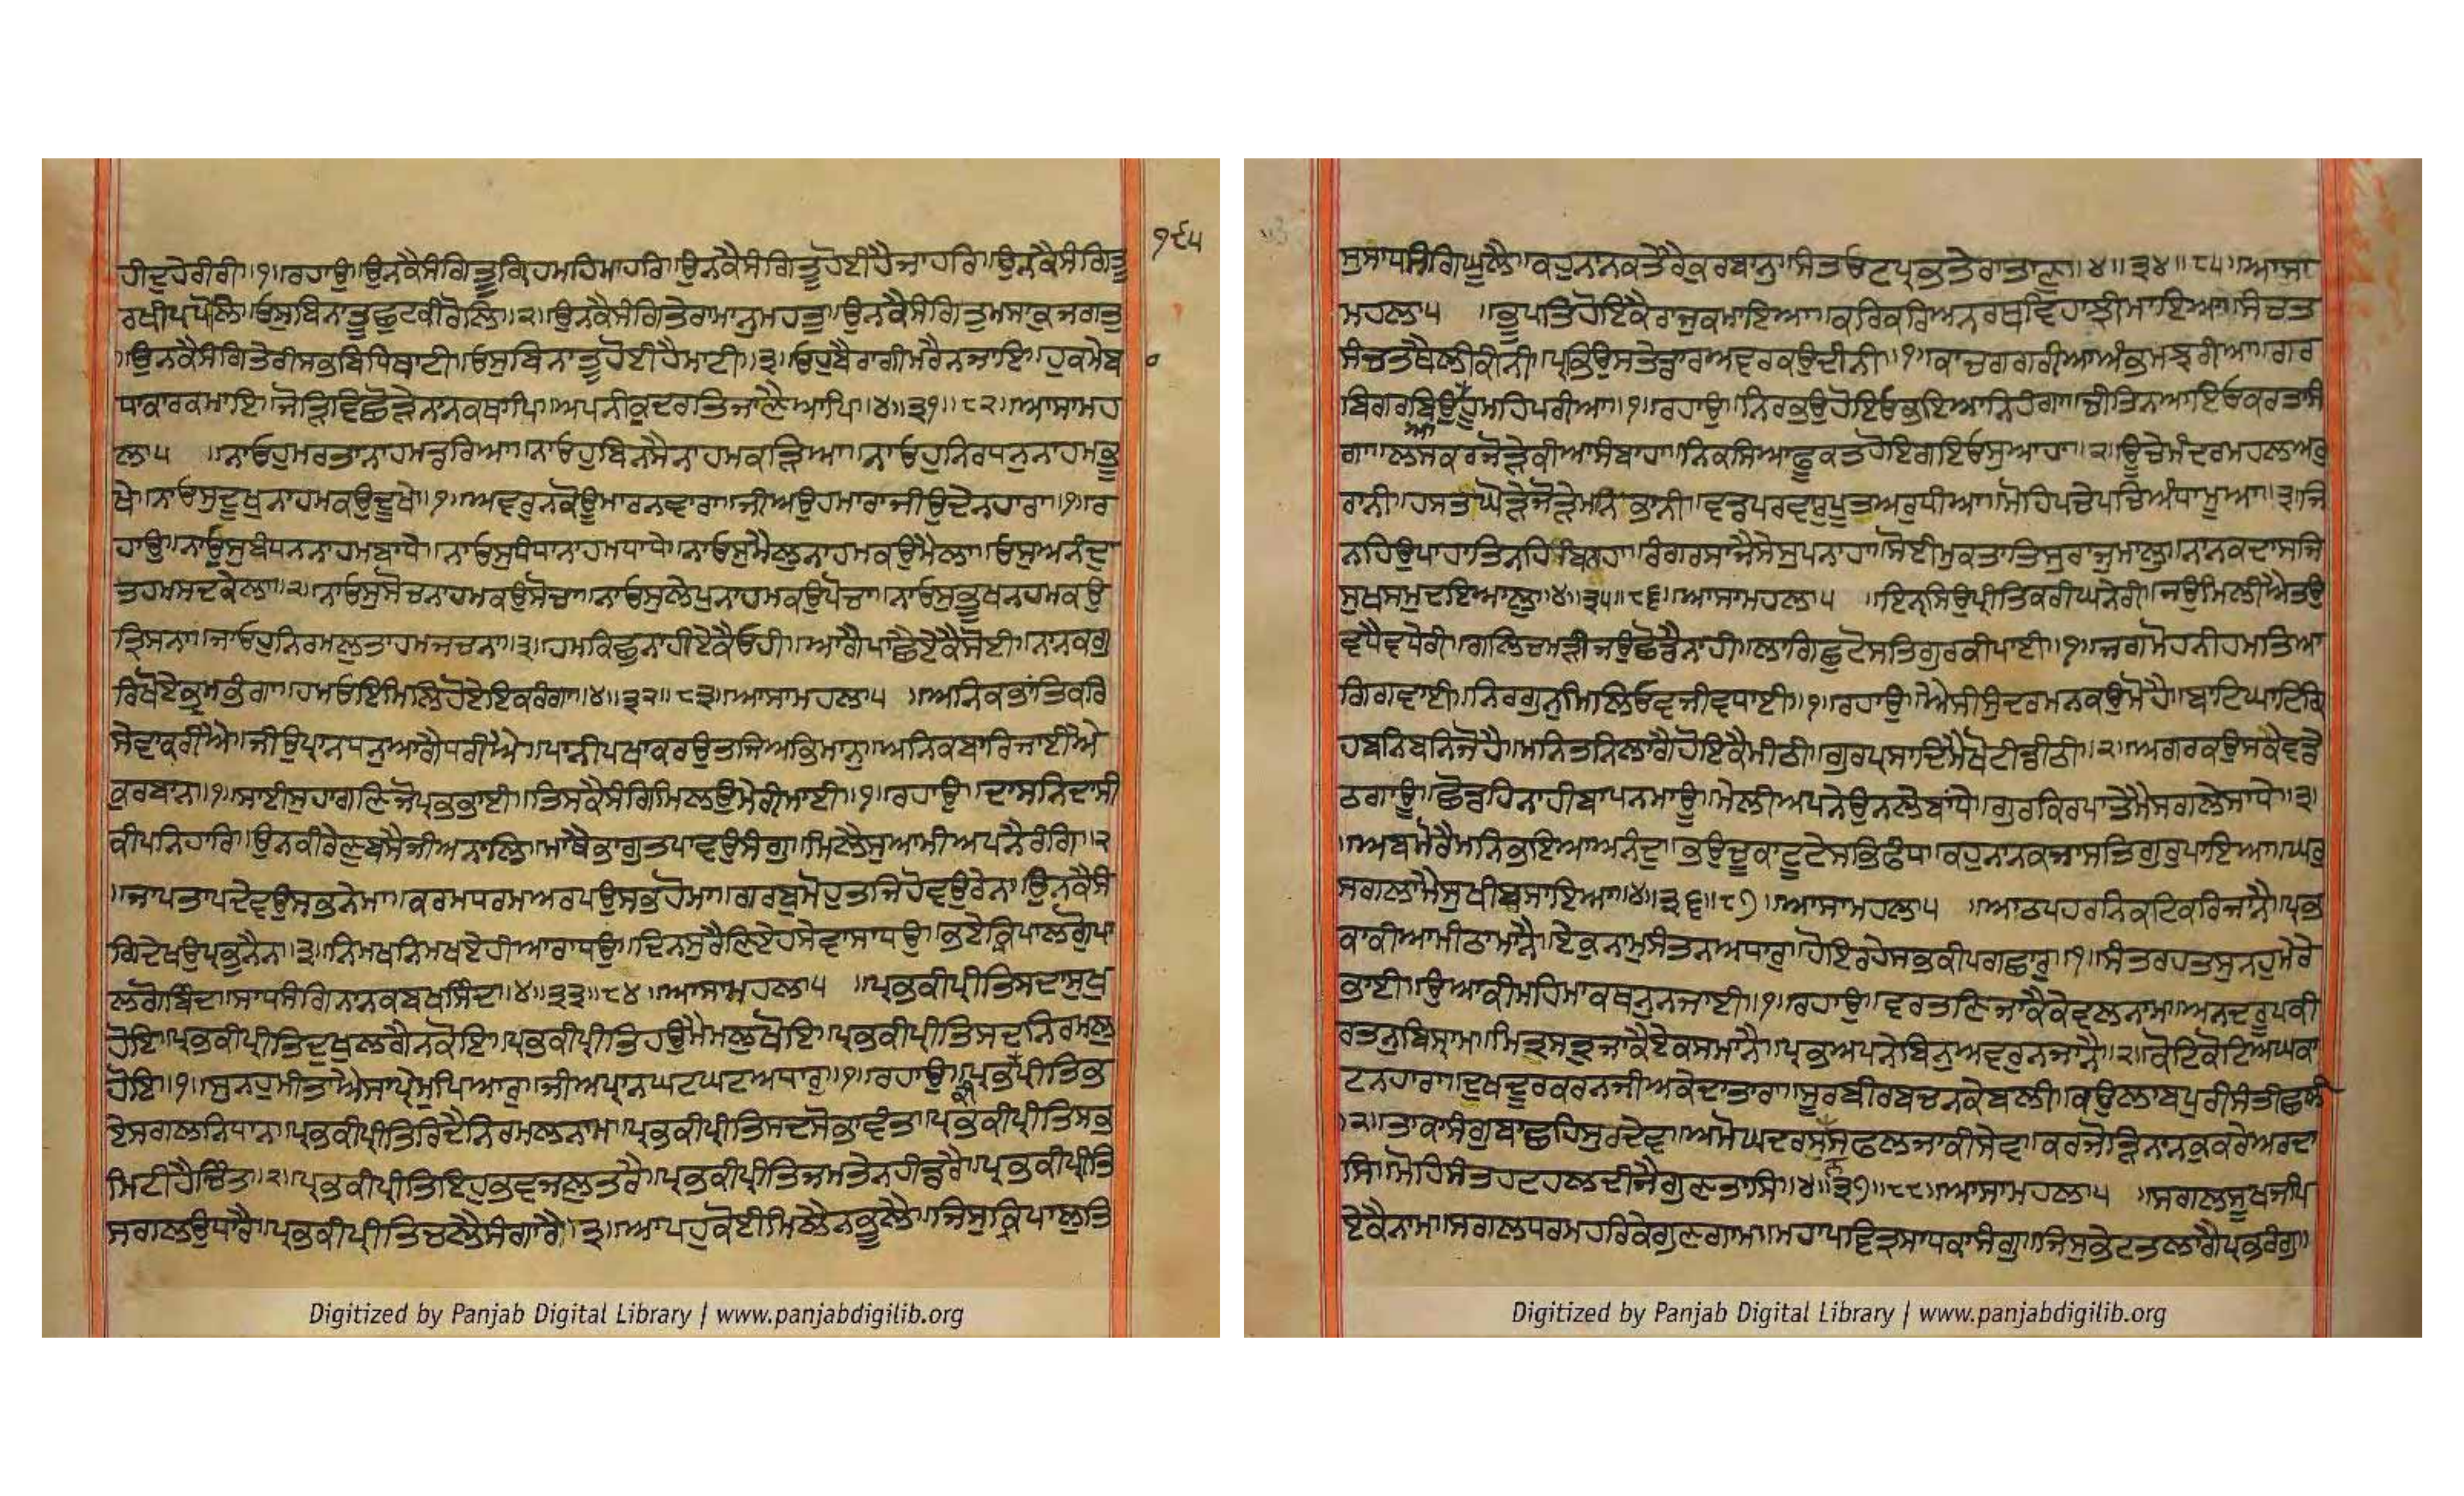 ੧੬੫
ਹੀਦੁਹੇਰੀਰੀ॥੧॥ਰਹਾਉ॥ਉਨਕੈਸੰਗਿਤੂਗ੍ਰਿਹਮਹਿਮਾਹਰਿ॥ਉਨਕੈਸੰਗਿਤੂਹੋਈਹੈਜਾਹਰਿ॥ਉਨਕੈਸੰਗਿਤੂ
ਰਖੀਪਪੋਲਿ॥ਓਸੁਬਿਨਾਤੂਛੁਟਕੀਰੋਲਿ॥੨॥ਉਨਕੈਸੰਗਿਤੇਰਾਮਾਨੁਮਹਤੁ॥ਉਨਕੈਸੰਗਿਤੁਮਸਾਕੁਜਗਤੁ
॥ਉਨਕੈਸੰਗਿਤੇਰੀਸਭਬਿਧਿਥਾਟੀ॥ਓਸੁਬਿਨਾਤੂਹੋਈਹੈਮਾਟੀ॥੩॥ਓਹੁਬੈਰਾਗੀਮਰੈਨਜਾਇ॥ਹੁਕਮੇਬ
ਧਾਕਾਰਕਮਾਇ॥ਜੋੜਿਵਿਛੋੜੇਨਾਨਕਥਾਪਿ॥ਅਪਨੀਕੁਦਰਤਿਜਾਣੈਆਪਿ॥੪॥੩੧॥੮੨॥ਆਸਾਮਹ
ਲਾ੫ ॥ਨਾਓਹੁਮਰਤਾਨਾਹਮਡਰਿਆ॥ਨਾਓਹੁਬਿਨਸੈਨਾਹਮਕੜਿਆ॥ਨਾਓਹੁਨਿਰਧਨੁਨਾਹਮਭੂ
ਖੇ॥ਨਾਓਸੁਦੂਖੁਨਾਹਮਕਉਦੂਖੇ॥੧॥ਅਵਰੁਨਕੋਊਮਾਰਨਵਾਰਾ॥ਜੀਅਉਹਮਾਰਾਜੀਉਦੇਨਹਾਰਾ॥੧॥ਰ
ਹਾਉ॥ਨਾਓਸੁਬੰਧਨਨਾਹਮਬਾਧੇ॥ਨਾਓਸੁਧੰਧਾਨਾਹਮਧਾਧੇ॥ਨਾਓਸੁਮੈਲੁਨਾਹਮਕਉਮੈਲਾ॥ਓਸੁਅਨੰਦੁ
ਤਹਮਸਦਕੇਲਾ॥੨॥ਨਾਓਸੁਸੋਚਨਾਹਮਕਉਸੋਚਾ॥ਨਾਓਸੁਲੇਪੁਨਾਹਮਕਉਪੋਚਾ॥ਨਾਓਸੁਭੂਖਨਹਮਕਉ
ਤ੍ਰਿਸਨਾ॥ਜਾਓਹੁਨਿਰਮਲੁਤਾਹਮਜਚਨਾ॥੩॥ਹਮਕਿਛੁਨਾਹੀਏਕੈਓਹੀ॥ਆਗੈਪਾਛੈਏਕੈਸੋਈ॥ਨਾਨਕਗੁ
ਰਿਖੋਏਭ੍ਰਮਭੰਗਾ॥ਹਮਓਇਮਿਲਿਹੋਏਇਕਰੰਗਾ॥੪॥੩੨॥੮੩॥ਆਸਾਮਹਲਾ੫ ॥ਅਨਿਕਭਾਂਤਿਕਰਿ
ਸੇਵਾਕਰੀਐ॥ਜੀਉਪ੍ਰਾਨਧਨੁਆਗੈਧਰੀਐ॥ਪਾਨੀਪਖਾਕਰਉਤਜਿਅਭਿਮਾਨੁ॥ਅਨਿਕਬਾਰਿਜਾਈਐ
ਕੁਰਬਾਨੁ॥੧॥ਸਾਈਸੁਹਾਗਣਿਜੋਪ੍ਰਭਭਾਈ॥ਤਿਸਕੈਸੰਗਿਮਿਲਉਮੇਰੀਮਾਈ॥੧॥ਰਹਾਉ॥ਦਾਸਨਿਦਾਸੀ
ਕੀਪਨਿਹਾਰਿ॥ਉਨਕੀਰੇਣੁਬਸੈਜੀਅਨਾਲਿ॥ਮਾਥੈਭਾਗੁਤਪਾਵਉਸੰਗੁ॥ਮਿਲੈਸੁਆਮੀਅਪਨੈਰੰਗਿ॥੨
॥ਜਾਪਤਾਪਦੇਵਉਸਭਨੇਮਾ॥ਕਰਮਧਰਮਅਰਪਉਸਭਹੋਮਾ॥ਗਰਬੁਮੋਹੁਤਜਿਹੋਵਉਰੇਨਾ॥ਉਨਕੈਸੰ
ਗਿਦੇਖਉਪ੍ਰਭੁਨੈਨਾ॥੩॥ਨਿਮਖਨਿਮਖਏਹੀਆਰਾਧਉ॥ਦਿਨਸੁਰੈਣਿਏਹਸੇਵਾਸਾਧਉ॥ਭਏਕ੍ਰਿਪਾਲਗੁੋਪਾ
ਲਗੋਬਿੰਦ॥ਸਾਧਸੰਗਿਨਾਨਕਬਖਸਿੰਦ॥੪॥੩੩॥੮੪॥ਆਸਾਮਹਲਾ੫ ॥ਪ੍ਰਭਕੀਪ੍ਰੀਤਿਸਦਾਸੁਖੁ
ਹੋਇ॥ਪ੍ਰਭਕੀਪ੍ਰੀਤਿਦੁਖੁਲਗੈਨਕੋਇ॥ਪ੍ਰਭਕੀਪ੍ਰੀਤਿਹਉਮੈਮਲੁਖੋਇ॥ਪ੍ਰਭਕੀਪ੍ਰੀਤਿਸਦਨਿਰਮਲੁ
ਹੋਇ॥੧॥ਸੁਨਹੁਮੀਤਐਸਾਪ੍ਰੇਮੁਪਿਆਰੁ॥ਜੀਅਪ੍ਰਾਨਘਟਘਟਅਧਾਰੁ॥੧॥ਰਹਾਉ॥ਪ੍ਰਭਕੀਪ੍ਰੀਤਿਭ
ਏਸਗਲਨਿਧਾਨ॥ਪ੍ਰਭਕੀਪ੍ਰੀਤਿਰਿਦੈਨਿਰਮਲਨਾਮ॥ਪ੍ਰਭਕੀਪ੍ਰੀਤਿਸਦਸੋਭਾਵੰਤ॥ਪ੍ਰਭਕੀਪ੍ਰੀਤਿਸਭ
ਮਿਟੀਹੈਚਿੰਤ॥੨॥ਪ੍ਰਭਕੀਪ੍ਰੀਤਿਇਹੁਭਵਜਲੁਤਰੈ॥ਪ੍ਰਭਕੀਪ੍ਰੀਤਿਜਮਤੇਨਹੀਡਰੈ॥ਪ੍ਰਭਕੀਪ੍ਰੀਤਿ
ਸਗਲਉਧਾਰੈ॥ਪ੍ਰਭਕੀਪ੍ਰੀਤਿਚਲੈਸੰਗਾਰੈ॥੩॥ਆਪਹੁਕੋਈਮਿਲੈਨਭੂਲੈ॥ਜਿਸੁਕ੍ਰਿਪਾਲੁਤਿ
ਸੁਸਾਧਸੰਗਿਘੁਲੈ॥ਕਹੁਨਾਨਕਤੇਰੈਕੁਰਬਾਨੁ॥ਸੰਤਓਟਪ੍ਰਭਤੇਰਾਤਾਣੁ॥੪॥੩੪॥੮੫॥ਆਸਾ
ਮਹਲਾ੫ ॥ਭੂਪਤਿਹੋਇਕੈਰਾਜੁਕਮਾਇਆ॥ਕਰਿਕਰਿਅਨਰਥਵਿਹਾਝੀਮਾਇਆ॥ਸੰਚਤ
ਸੰਚਤਥੈਲੀਕੀਨੀ॥ਪ੍ਰਭਿਉਸਤੇਡਾਰਅਵਰਕਉਦੀਨੀ॥੧॥ਕਾਚਗਗਰੀਆਅੰਭਮਝਰੀਆ॥ਗਰ
ਬਿਗਰਬਿਉਆਹੂਮਹਿਪਰੀਆ॥੧॥ਰਹਾਉ॥ਨਿਰਭਉਹੋਇਓਭਇਆਨਿਹੰਗਾ॥ਚੀਤਿਨਆਇਓਕਰਤਾਸੰ
ਗਾ॥ਲਸਕਰਜੋੜੇਕੀਆਸੰਬਾਹਾ॥ਨਿਕਸਿਆਫੂਕਤਹੋਇਗਇਓਸੁਆਹਾ॥੨॥ਊਚੇਮੰਦਰਮਹਲਅਰੁ
ਰਾਨੀ॥ਹਸਤਿਘੋੜੇਜੋੜੇਮਨਿਭਾਨੀ॥ਵਡਪਰਵਾਰੁਪੂਤਅਰੁਧੀਆ॥ਮੋਹਿਪਚੇਪਚਿਅੰਧਾਮੂਆ॥੩॥ਜਿ
ਨਹਿਉਪਾਹਾਤਿਨਹਿਬਿਨਾਹਾ॥ਰੰਗਰਸਾਜੈਸੇਸੁਪਨਾਹਾ॥ਸੋਈਮੁਕਤਾਤਿਸੁਰਾਜੁਮਾਲੁ॥ਨਾਨਕਦਾਸਜਿ
ਸੁਖਸਮੁਦਇਆਲੁ॥੪॥੩੫॥੮੬॥ਆਸਾਮਹਲਾ੫ ॥ਇਨ੍ਹਸਿਉਪ੍ਰੀਤਿਕਰੀਘਨੇਰੀ॥ਜਉਮਿਲੀਐਤਉ
ਵਧੈਵਧੇਰੀ॥ਗਲਿਚਮੜੀਜਉਛੋਡੈਨਾਹੀ॥ਲਾਗਿਛੁਟੋਸਤਿਗੁਰਕੀਪਾਈ॥੧॥ਜਗਮੋਹਨੀਹਮਤਿਆ
ਗਿਗਵਾਈ॥ਨਿਰਗੁਨੁਮਿਲਿਓਵਜੀਵਧਾਈ॥੧॥ਰਹਾਉ॥ਐਸੀਸੁੰਦਰਮਨਕਉਮੋਹੈ॥ਬਾਟਿਘਾਟਿਗ੍ਰਿ
ਹਬਨਿਬਨਿਜੋਹੈ॥ਮਨਿਤਨਿਲਾਗੈਹੋਇਕੈਮੀਠੀ॥ਗੁਰਪ੍ਰਸਾਦਿਮੈਖੋਟੀਡੀਠੀ॥੨॥ਅਗਰਕਉਸਕੈਵਡੇ
ਠਗਾਊ॥ਛੋਡਹਿਨਾਹੀਬਾਪਨਮਾਊ॥ਮੇਲੀਅਪਨੇਉਨਲੇਬਾਂਧੇ॥ਗੁਰਕਿਰਪਾਤੇਮੈਸਗਲੇਸਾਧੇ॥੩॥
॥ਅਬਮੋਰੈਮਨਿਭਇਆਅਨੰਦੁ॥ਭਉਚੂਕਾਟੂਟੇਸਭਿਫੰਧ॥ਕਹੁਨਾਨਕਜਾਸਤਿਗੁਰੁਪਾਇਆ॥ਘਰੁ
ਸਗਲਾਮੈਸੁਖੀਬਸਾਇਆ॥੪॥੩੬॥੮੭॥ਆਸਾਮਹਲਾ੫ ॥ਆਠਪਹਰਨਿਕਟਿਕਰਿਜਾਨੈ॥ਪ੍ਰਭ
ਕਾਕੀਆਮੀਠਾਮਾਨੈ॥ਏਕੁਨਾਮੁਸੰਤਨਆਧਾਰੁ॥ਹੋਇਰਹੇਸਭਕੀਪਗਛਾਰੁ॥੧॥ਸੰਤਰਹਤਸੁਨਹੁਮੇਰੇ
ਭਾਈ॥ਉਆਕੀਮਹਿਮਾਕਥਨੁਨਜਾਈ॥੧॥ਰਹਾਉ॥ਵਰਤਣਿਜਾਕੈਕੇਵਲਨਾਮ॥ਅਨਦਰੂਪਕੀ
ਰਤਨੁਬਿਸ੍ਰਾਮ॥ਮਿਤ੍ਰਸਤ੍ਰੁਜਾਕੈਏਕਸਮਾਨੈ॥ਪ੍ਰਭਅਪਨੇਬਿਨੁਅਵਰੁਨਜਾਨੈ॥੨॥ਕੋਟਿਕੋਟਿਅਘਕਾ
ਟਨਹਾਰਾ॥ਦੁਖਦੂਰਕਰਨਜੀਅਕੇਦਾਤਾਰਾ॥ਸੂਰਬੀਰਬਚਨਕੇਬਲੀ॥ਕਉਲਾਬਪੁਰੀਸੰਤੀਛਲੀ
॥੨॥ਤਾਕਾਸੰਗੁਬਾਛਹਿਸੁਰਦੇਵ॥ਅਮੋਘਦਰਸੁਸਫਲਜਾਕੀਸੇਵ॥ਕਰਜੋੜਿਨਾਨਕੁਕਰੇਅਰਦਾ
ਸਿ॥ਮੋਹਿਸੰਤਹਟਹਲਦੀਜੈਗੁਣਤਾਸਿ॥੪॥੩੭॥੮੮॥ਆਸਾਮਹਲਾ੫ ॥ਸਗਲਸੂਖਜਪਿ
ਏਕੈਨਾਮ॥ਸਗਲਧਰਮਹਰਿਕੇਗੁਣਗਾਮ॥ਮਹਾਪਵਿਤ੍ਰਸਾਧਕਾਸੰਗੁ॥ਜਿਸੁਭੇਟਤਲਾਗੈਪ੍ਰਭਰੰਗੁ॥
Digitized by Panjab Digital Library | www.panjabdigilib.org
Digitized by Panjab Digital Library | www.panjabdigilib.org